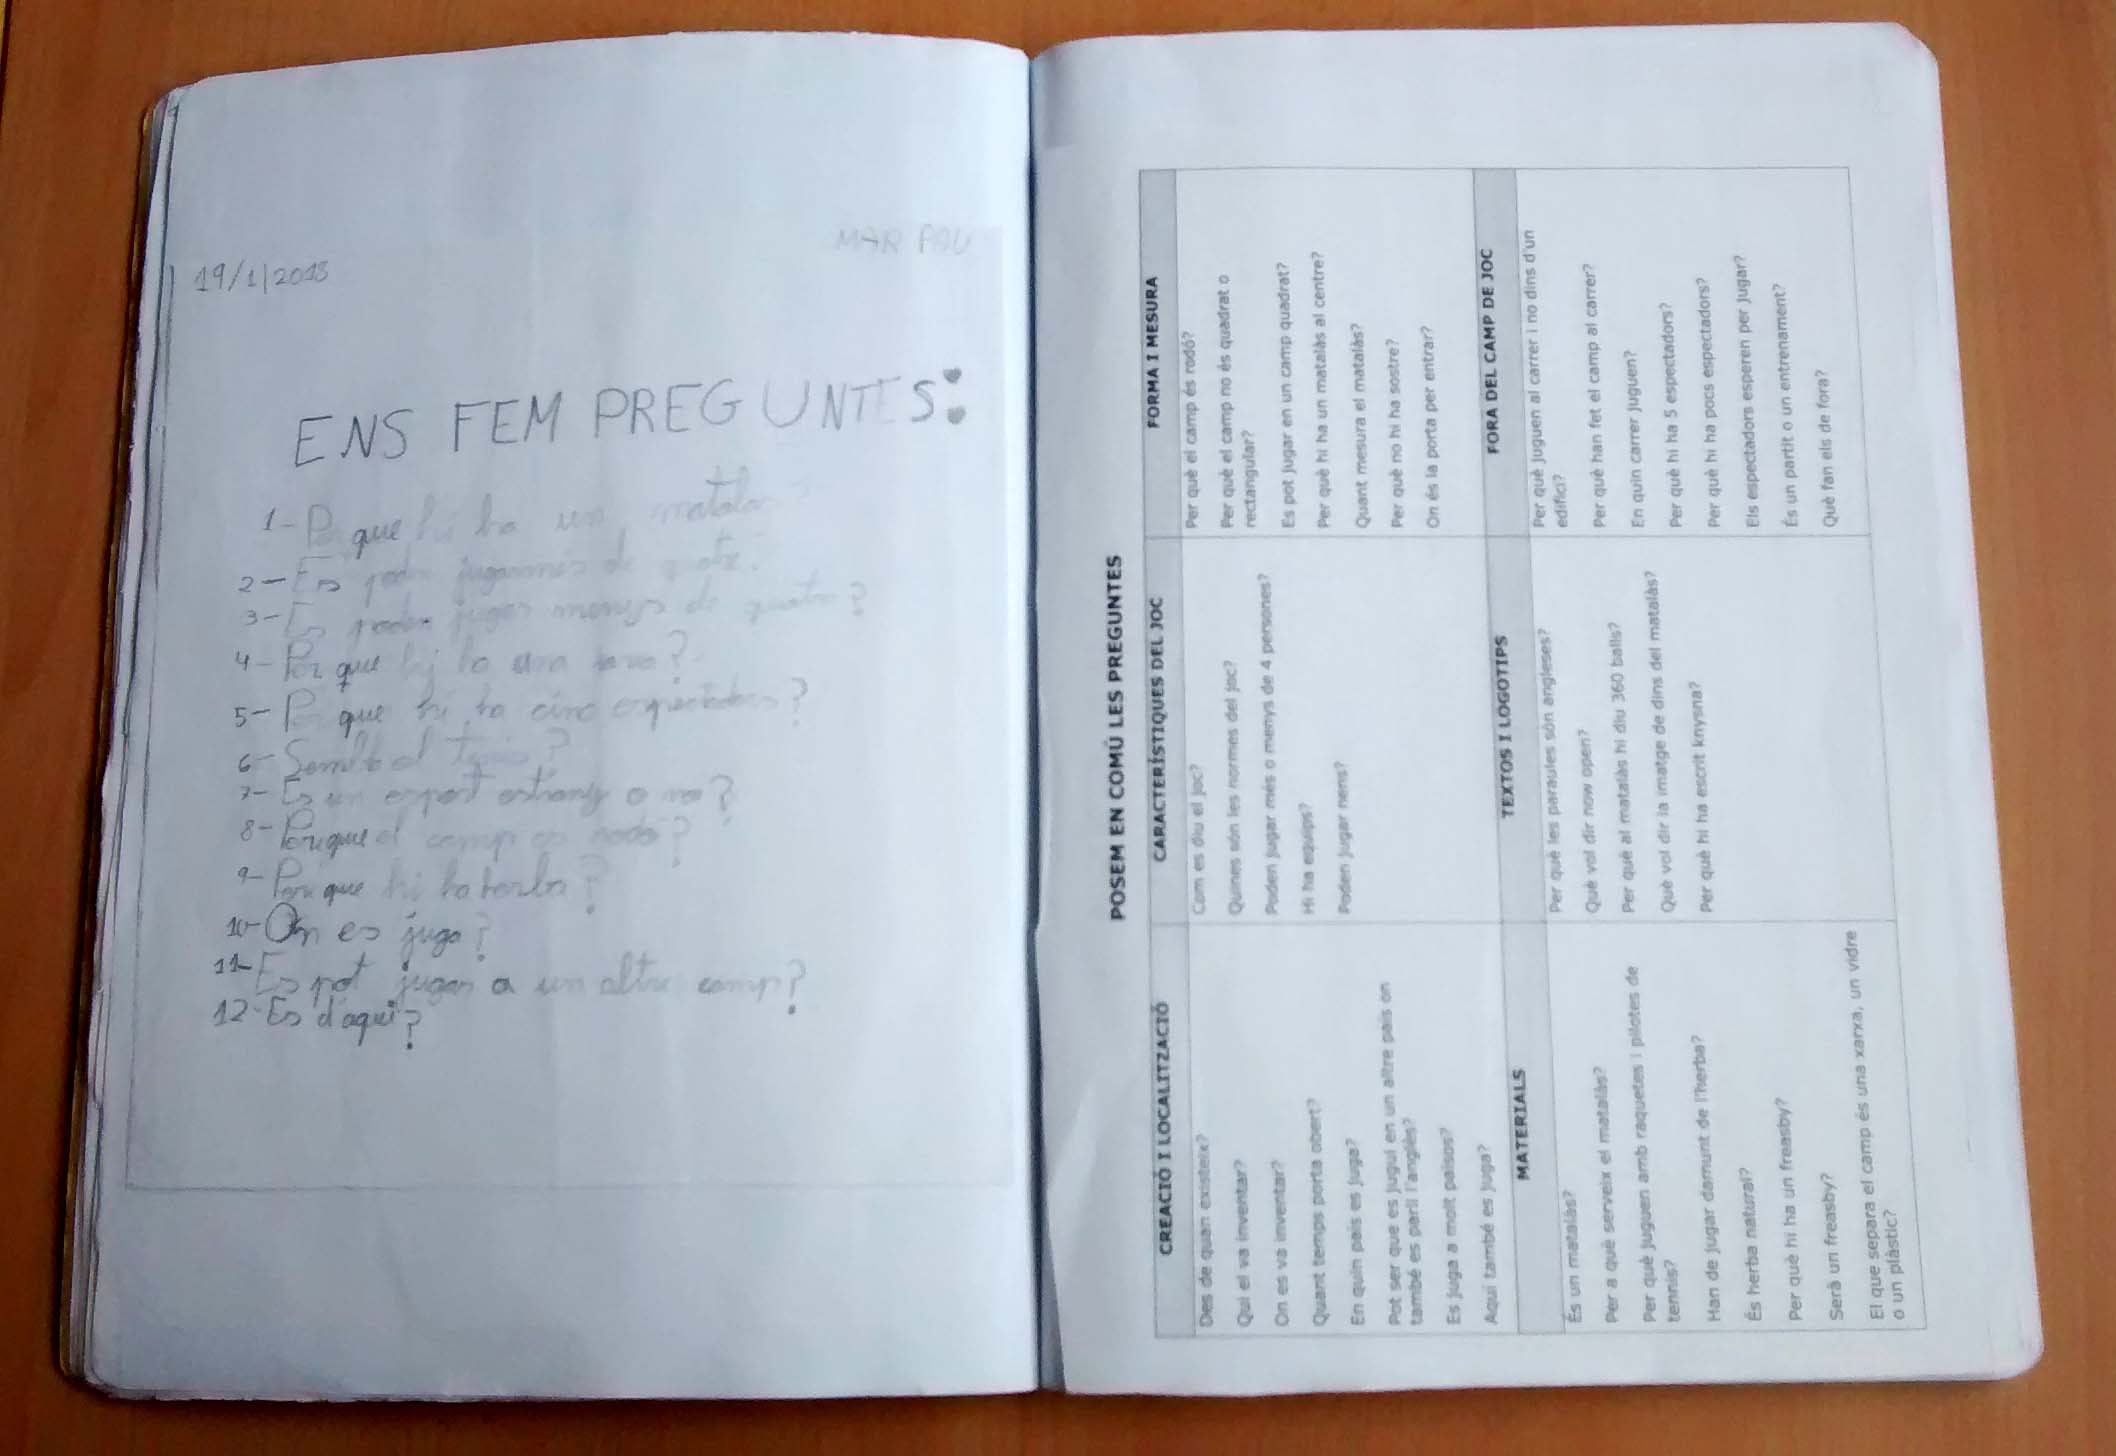 19/1/2018
MAR PAU
ENS FEM PREGUNTES:
1- Per que hi ha un matalas?
2- Es poden jugar més de
3- Es poden jugar menys de quatre?
4- Per que hi ha una
5- Per que hi ha cinc espectadors?
6- Sembla el
7- Es un esport estrany o no?
8- Perque el camp es rodo?
9- Per que hi ha
10- On es juga?
11- Es pot jugar a un altre camp?
12- Es d'aqui?
POSEM EN COMÚ LES PREGUNTES
CREACIÓ I LOCALITZACIÓ
Des de quan existeix?
Qui el va inventar?
On es va inventar?
Quant temps porta obert?
En quin país es juga?
Pot ser que es jugui en un altre país on
també es parli l'anglès?
Es juga a molt països?
Aquí també es juga?
CARACTERÍSTIQUES DEL JOC
Com es diu el joc?
Quines són les normes del joc?
Poden jugar més o menys de 4 persones?
Hi ha equips?
Poden jugar nens?
FORMA I MESURA
Per què el camp és rodó?
Per què el camp no és quadrat o
rectangular?
Es pot jugar en un camp quadrat?
Per què hi ha un matalàs al centre?
Quant mesura el matalàs?
Per què no hi ha sostre?
On és la porta per entrar?
MATERIALS
És un matalàs?
Per a què serveix el matalàs?
Per què juguen amb raquetes i pilotes de
tennis?
Han de jugar damunt de l'herba?
És herba natural?
Per què hi ha un freasby?
Serà un freasby?
El que separa el camp és una xarxa, un vidre
o un plàstic?
TEXTOS I LOGOTIPS
Per què les paraules són angleses?
Què vol dir now open?
Per què al matalàs hi diu 360 balls?
Què vol dir la imatge de dins del matalàs?
Per què hi ha escrit knysna?
FORA DEL CAMP DE JOC
Per què juguen al carrer i no dins d'un
edifici?
Per què han fet el camp al carrer?
En quin carrer juguen?
Per què hi ha 5 espectadors?
Per què hi ha pocs espectadors?
Els espectadors esperen per jugar?
És un partit o un entrenament?
Què fan els de fora?